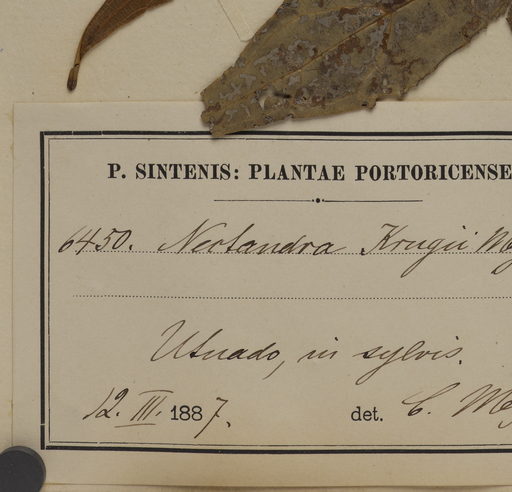 P. SINTENIS: PLANTAE PORTORICENSE
6450. Nectandra Krugii Me
Utuado, in sylvis.
12. III. 1887.
det. C. Me